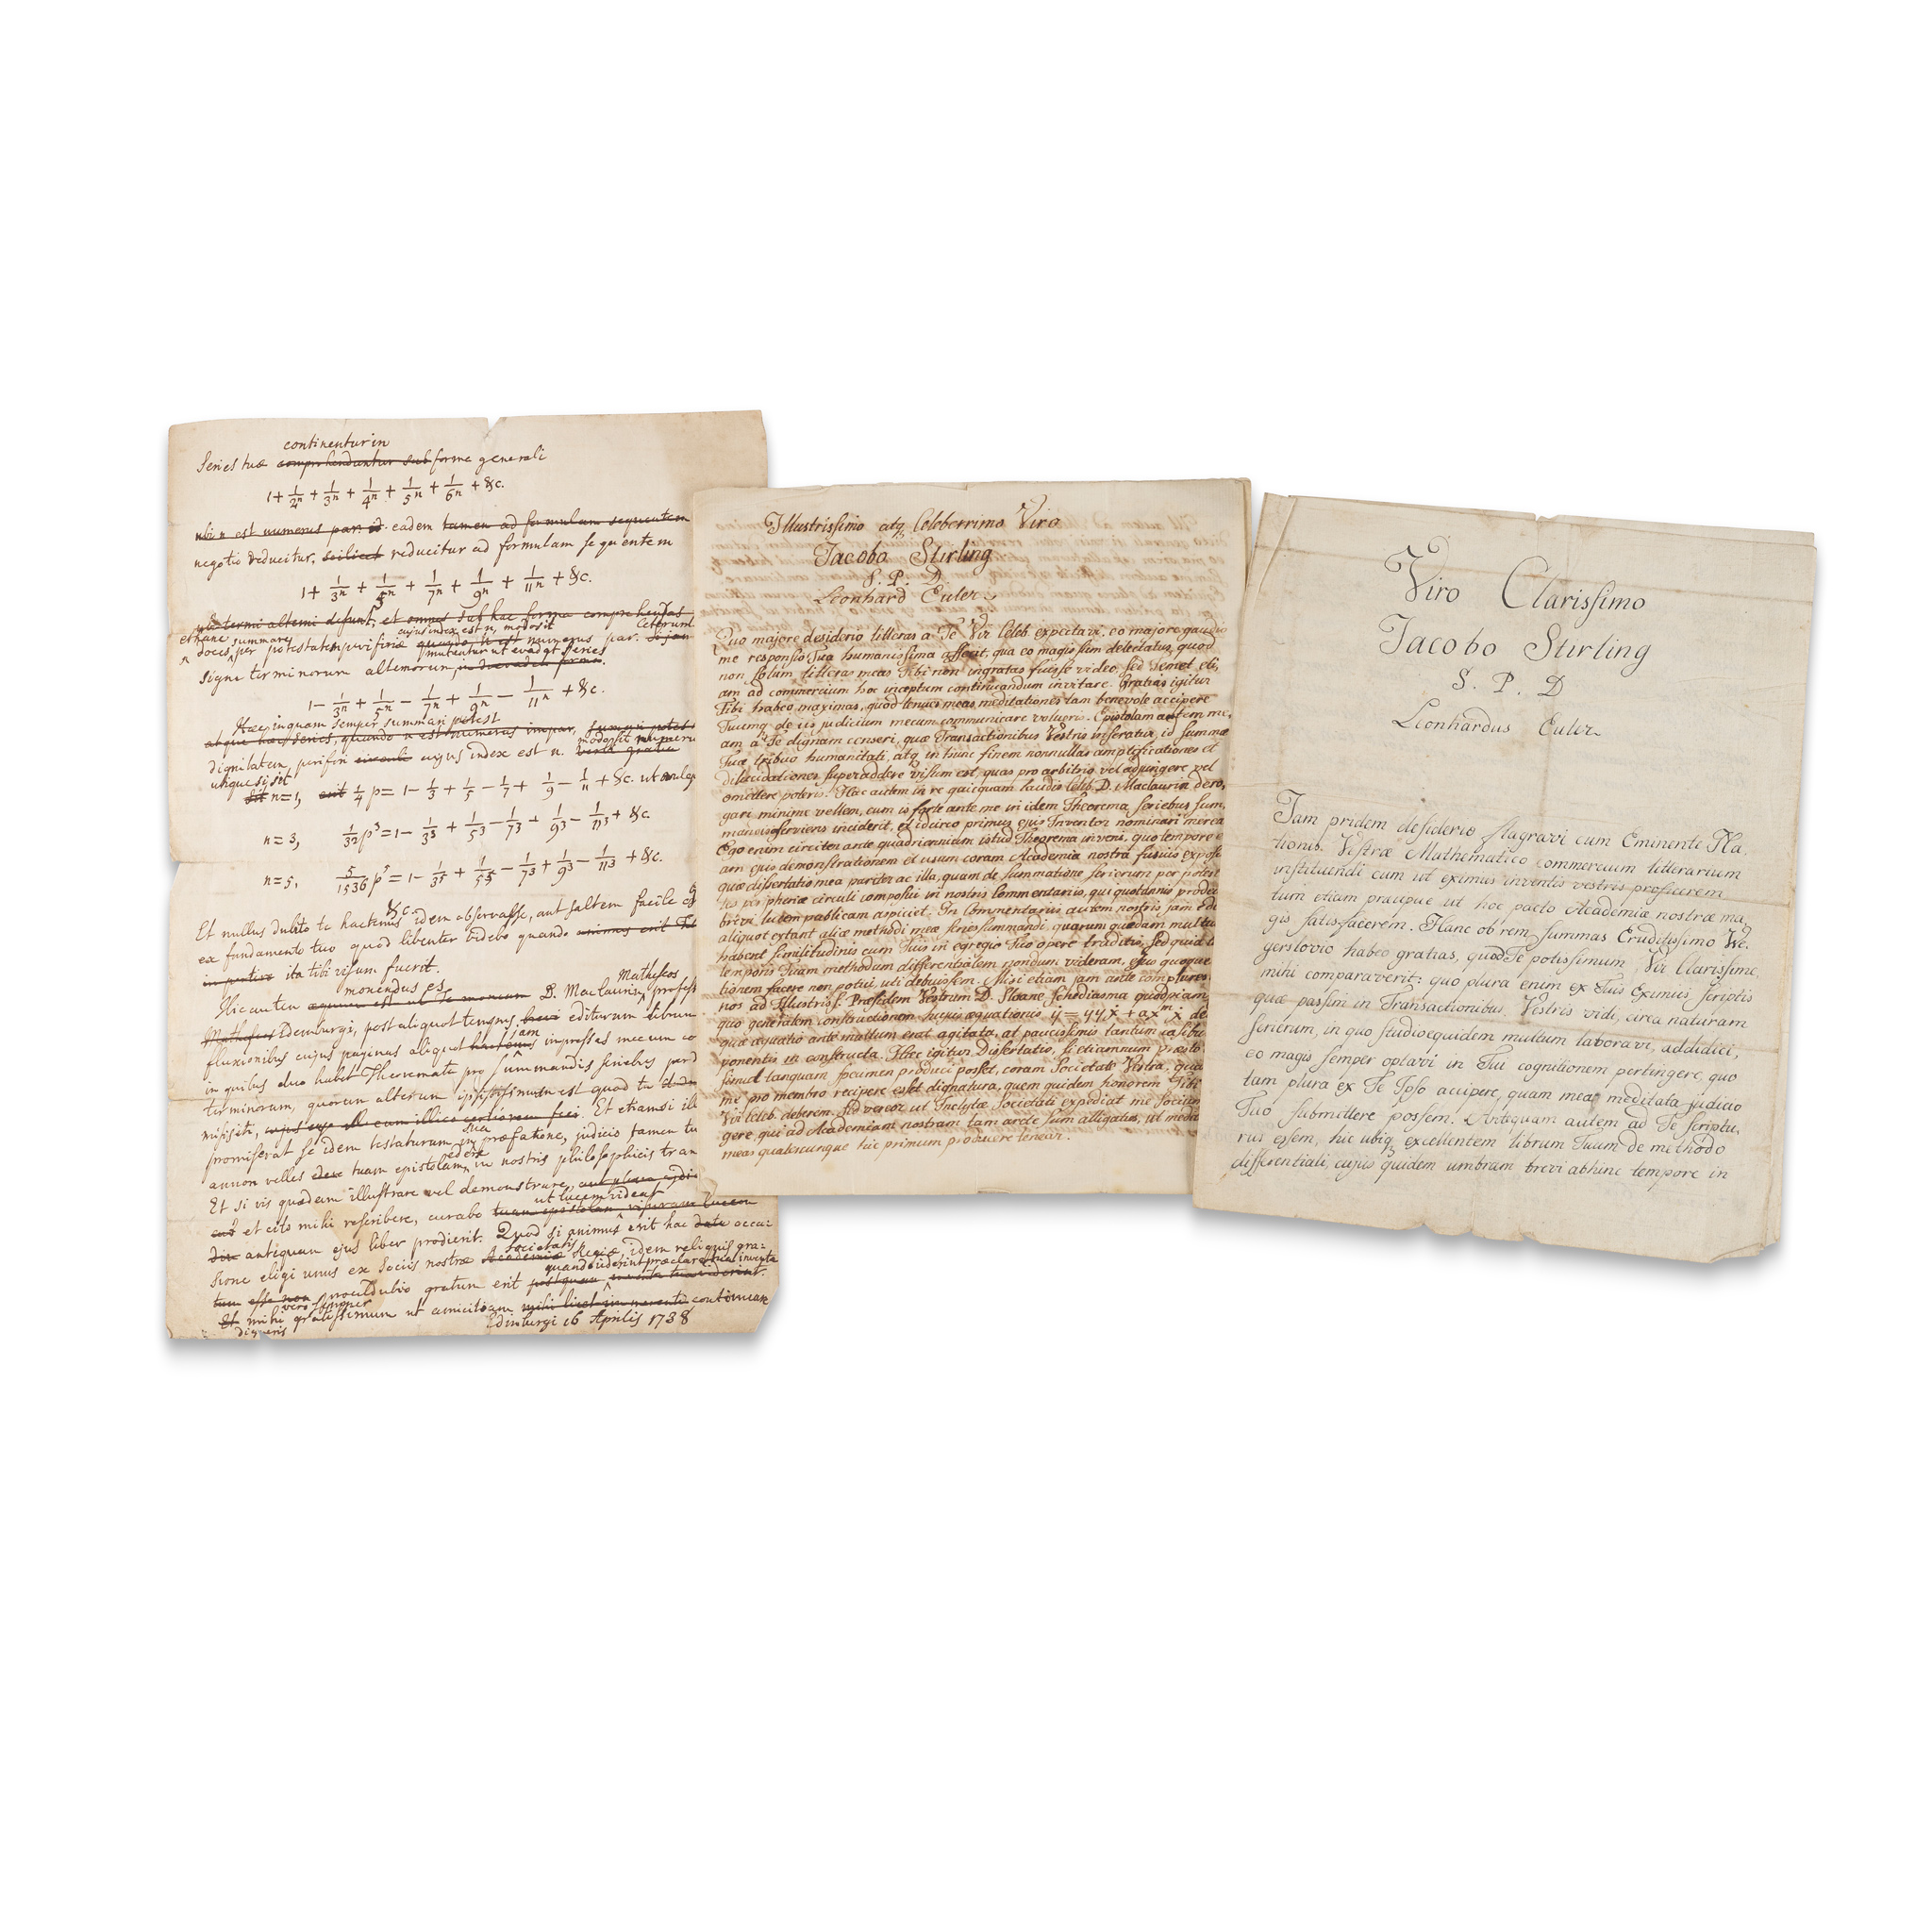 continentur in
Series tuæ comprehenduntur sub forma generali
1 + 1/2ⁿ + 1/3ⁿ + 1/4ⁿ + 1/5ⁿ + 1/6ⁿ + &c.
ubi n est numerus par. eadem tamen ad formulam sequentem
negotio reducitur, scilicet reducitur ad formulam sequentem
1 + 1/3ⁿ + 1/5ⁿ + 1/7ⁿ + 1/9ⁿ + 1/11ⁿ + &c.
termi alterni desunt, et omnes sub hac forma comprehensas
et hanc summare cujus index est n, modo sit
doces per potestatem peripheriæ numerus par.
mutentur ut evadat series
signa terminorum alternorum
1 − 1/3ⁿ + 1/5ⁿ − 1/7ⁿ + 1/9ⁿ − 1/11ⁿ + &c.
Hæc inquam semper summari potest
atque hæc series, quando n est numerus impar, summari potest
modo sit numerus
dignitatem periferiæ cujus index est n. verbi gratia
utique si sit
n=1, erit 1/4 p = 1 − 1/3 + 1/5 − 1/7 + 1/9 − 1/11 + &c. ut
n=3, 1/32 p³ = 1 − 1/3³ + 1/5³ − 1/7³ + 1/9³ − 1/11³ + &c.
n=5, 5/1536 p⁵ = 1 − 1/3⁵ + 1/5⁵ − 1/7³ + 1/9³ − 1/11³ + &c.
&c
Et nullus dubito te hactenus idem observasse, aut saltem facile
ex fundamento tuo quod libenter videbo quando animus erit
ita tibi visum fuerit.
monendus es Matheseos
Hic autem æquum est ut Te moneam D. Maclaurin, profess
Matheseos Edenburgi, post aliquot tempus editurum librum
jam
fluxionibus cujus paginas aliquot impressas mecum co
in quibus duo habet Theoremata pro summandis seriebus per
terminorum, quorum alterum ipsissimum est quod tu
misisti, Et etiamsi
sua
promiserat se idem testaturum in præfatione, judicio tamen
edere
annon velles tuam epistolam in nostris philosophicis tran
Et si vis quædam illustrare vel demonstrare,
et cito mihi rescribere, curabo
ut lucem videat
antequam ejus liber prodierit. Quod si animus erit hac occa:
societatis
sione eligi unus ex Sociis nostræ Academiæ Regiæ, idem reliquis gra:
quando viderint præclara tua inventa
tum esse non procul dubio gratum erit
vero semper
Et mihi gratissimum ut amicitiam continuare
digneris Edinburgi 16 Aprilis 1738
Illustrissimo atq. Celeberrimo Viro
Jacobo Stirling
S. P. D.
Leonhard Euler
Quo majore desiderio litteras a Te Vir Celeb. expectavi, eo majore gaudio
me responsio Tua humanissima affecit, qua eo magis sum delectatus, quod
non solum litteras meas Tibi non ingratas fuisse video, sed Temet eti,
am ad commercium hoc inceptum continuandum invitare. Gratias igitur
Tibi habeo maximas, quod tenues meas meditationes tam benevole accipere
Tuumq. de iis judicium mecum communicare volueris. Epistolam autem me,
am a Te dignam censeri, quæ Transactionibus Vestris inseratur, id summæ
Tuæ tribuo humanitati, atq. in hunc finem nonnullas amplificationes et
dilucidationes superaddere visum est, quas pro arbitrio vel adjungere vel
omittere poteris. Hac autem in re quicquam laudis Celeb. D. Maclaurin dero,
gare minime vellem, cum is forte ante me in idem Theorema seriebus sum,
mandis inserviens inciderit, et idcirco primus ejus Inventor nominari merea
Ego enim circiter ante quadriennium istud Theorema inveni, quo tempore e
am ejus demonstrationem et usum coram Academia nostra fusius expos
quæ dissertatio mea pariter ac illa, quam de summatione serierum per potest
tes peripheriæ circuli composui in nostris Commentariis, qui quotannis prode
brevi lucem publicam aspiciet. In Commentariis autem nostris jam edi
aliquot extant aliæ methodi meæ series summandi, quarum quædam multu
habent similitudinis cum Tuis in egregio Tuo opere traditis, sed quia
temporis Tuam methodum differentialem nondum videram, ejus quoque
tionem facere non potui, uti debuissem. Misi etiam jam ante complures
nos ad Illustriss. Præsidem Vestrum D. Sloane schediasma quodpiam
quo generalem constructionem hujus æquationis ẏ = yyẋ + axᵐẋ de
quæ æquatio ante multum erat agitata, at paucissimis tantum casibu
ponentis m constructa. Hæc igitur Dissertatio, si etiamnum præsto
simul tanquam specimen produci posset, coram Societate Vestra, qua
me pro membro recipere esset dignatura, quem quidem honorem Tibi
Vir Celeb. deberem. Sed vereor ut Inclytæ Societati expediat me Socium
gere, qui ad Academiam nostram tam arcte sum alligatus, ut medi
meas qualescunque hic primum producere tenear.
Viro Clarissimo
Jacobo Stirling
S. P. D
Leonhardus Euler
Jam pridem desiderio flagravi cum Eminente Na
tionis Vestræ Mathematico commercium litterarium
instituendi cum ut eximiis inventis vestris proficerem
tum etiam præcipue ut hoc pacto Academiæ nostræ ma,
gis satisfacerem. Hanc ob rem summas Eruditissimo We,
gerslovio habeo gratias, quod Te potissimum, Vir Clarissime,
mihi comparaverit: quo plura enim ex Tuis Eximiis scriptis
quæ passim in Transactionibus Vestris vidi, circa naturam
serierum, in quo studio equidem multum laboravi, addidici,
eo magis semper optavi in Tui cognitionem pertingere, quo
tam plura ex Te Ipso accipere, quam mea meditata judicio
Tuo submittere possem. Antequam autem ad Te scriptu,
rus essem, hic ubiq. excellentem librum Tuum de methodo
differentiali, cujus quidem umbram brevi abhinc tempore in